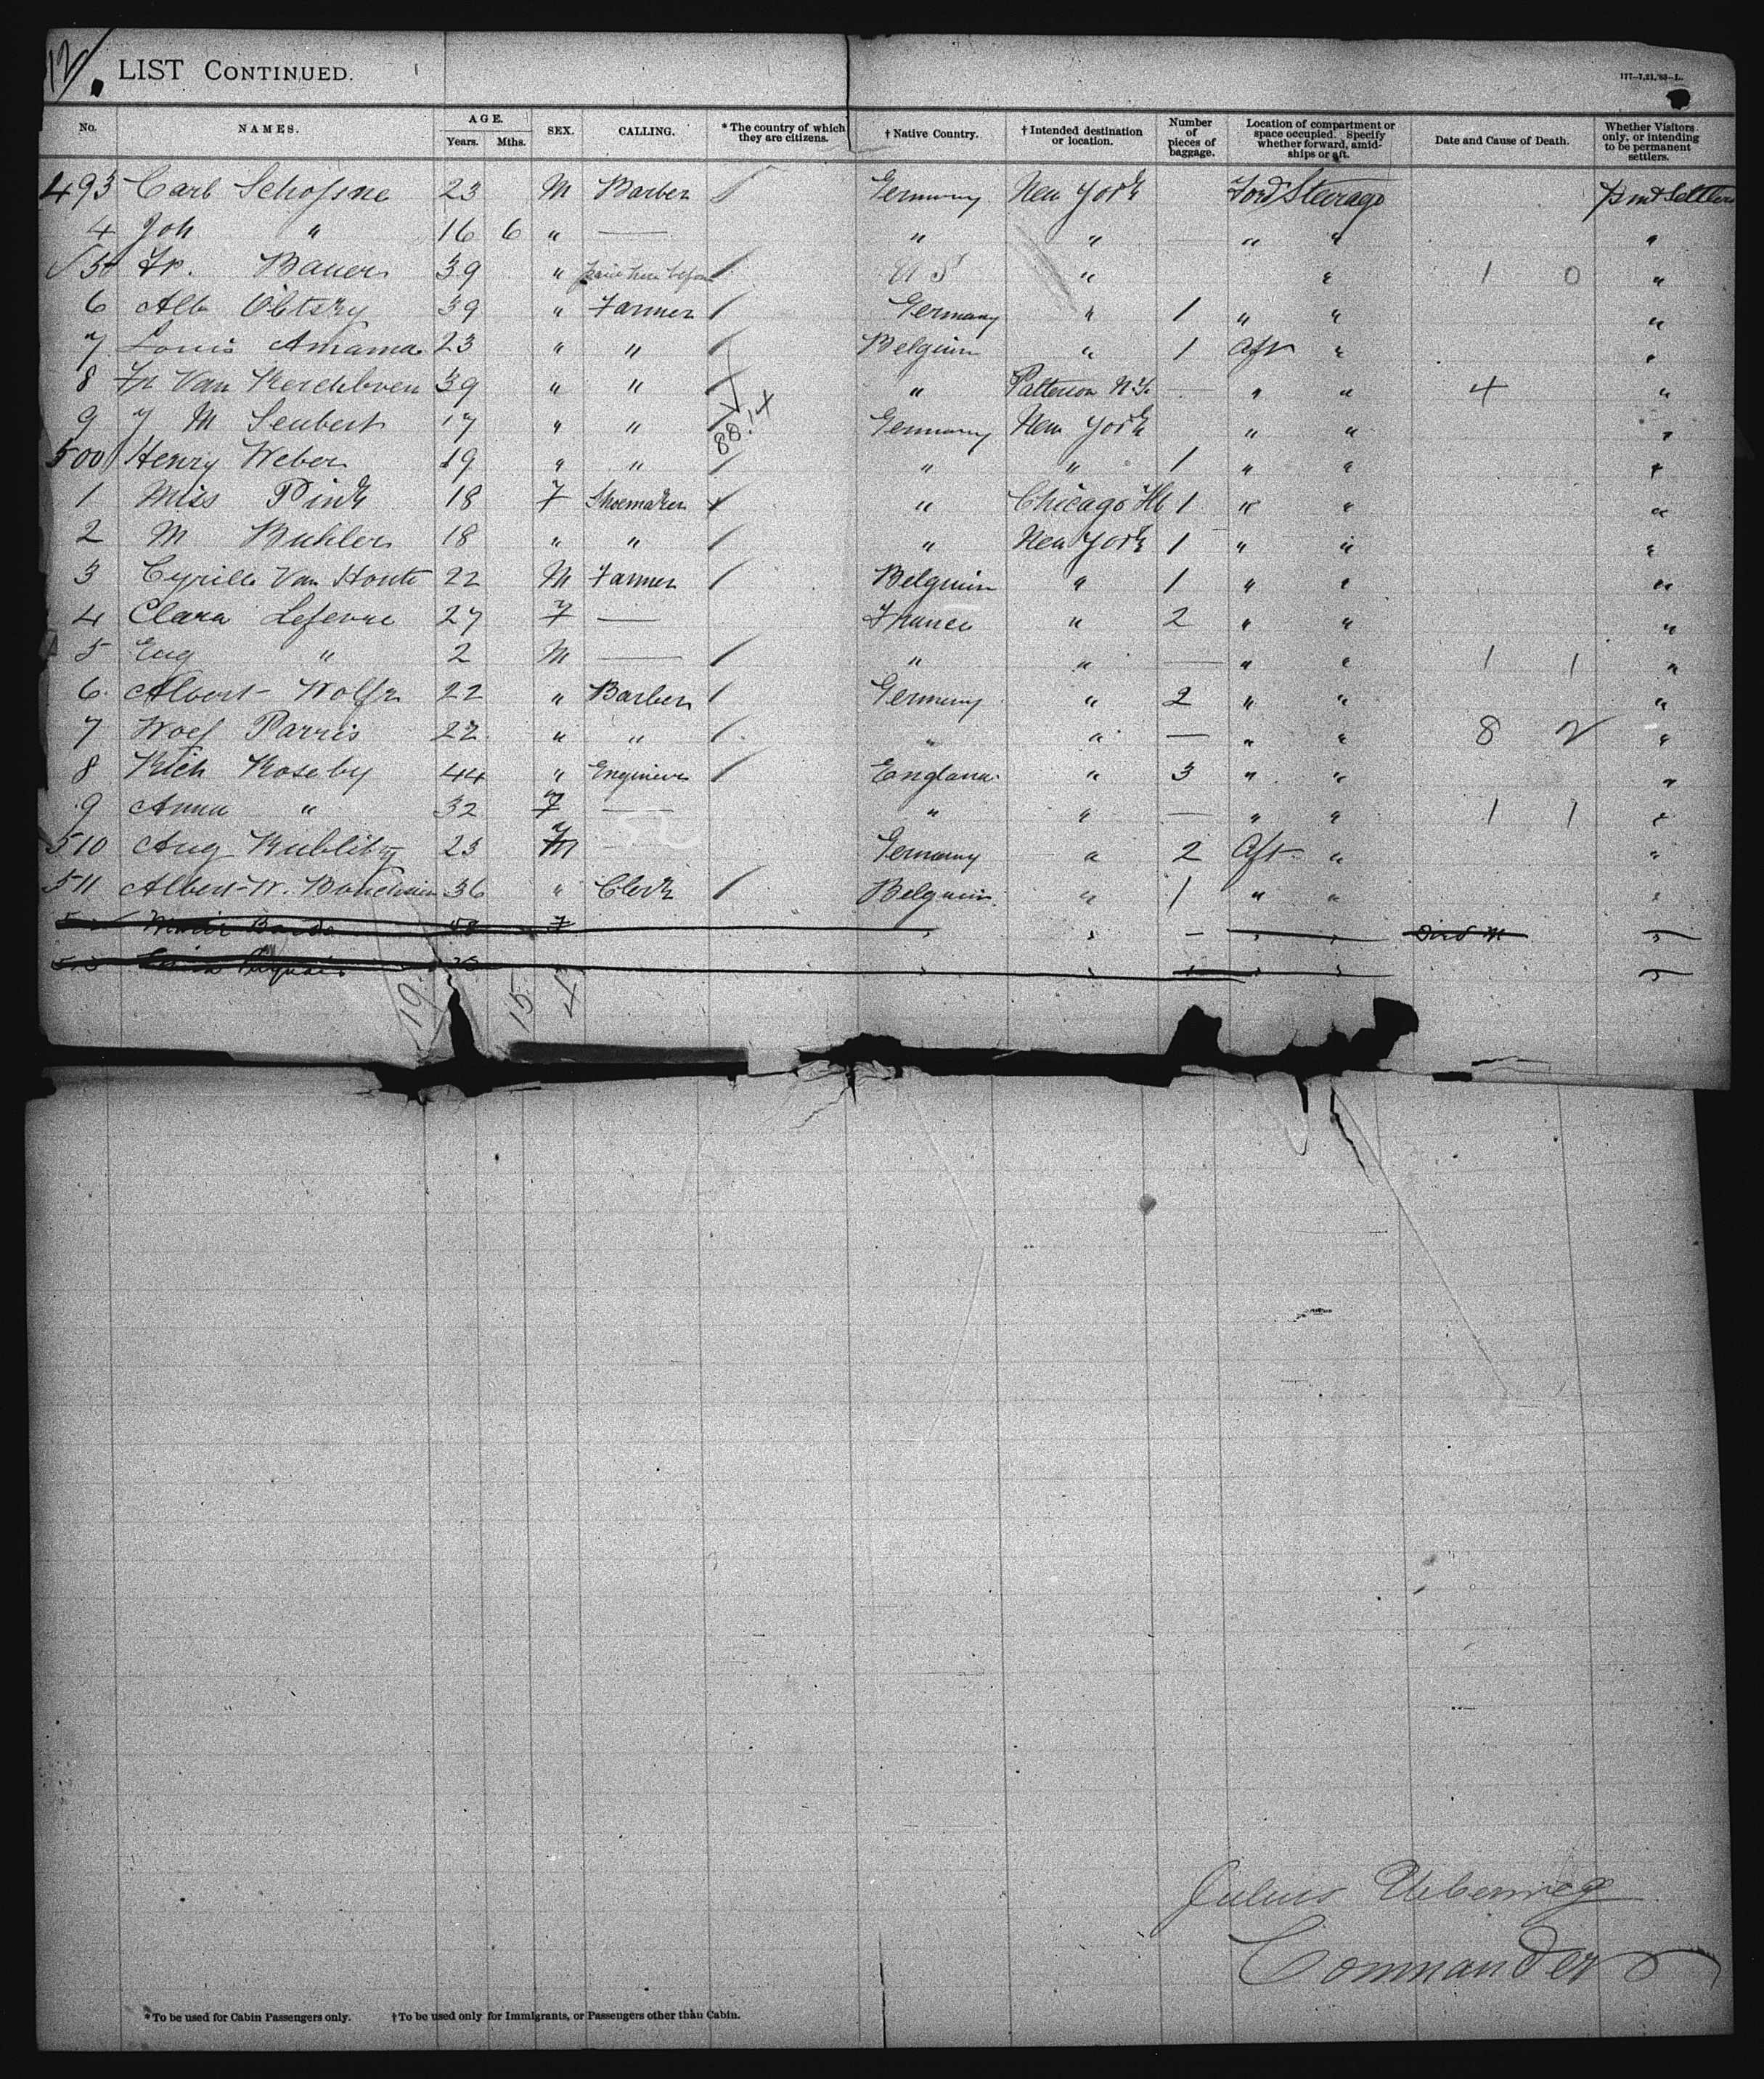 12/.
LIST CONTINUED.
177—7,21,'93—L.
No. NAMES. AGE. Years. Mths. SEX. CALLING. * The country of which they are citizens. † Native Country. † Intended destination or location. Number of pieces of baggage. Location of compartment or space occupied. Specify whether forward, amidships or aft. Date and Cause of Death. Whether Visitors only, or intending to be permanent settlers.
493 Carl 23 M Barber / Germany New York Ford Steerage Settlers
4 Joh " 16 6 " — " " — " " "
5 Fr. Bauer 39 " / U S " " 1 0 "
6 Alb 39 " Farmer / Germany " 1 " " "
7 Louis 23 " " / Belgium " 1 Aft " "
8 Fr Van 39 " " / " Patterson N.J. — " " 4 "
9 M Seubert 17 " " / Germany New York " " "
88.14
500 Henry Weber 19 " " / " " 1 " " "
1 Miss Pink 18 F Shoemaker / " Chicago Ill 1 " " "
2 M Buhler 18 " " / " New York 1 " " "
3 Cyrille Van Houte 22 M Farmer / Belgium " 1 " " "
4 Clara Lefevre 27 F — France " 2 " " "
5 Eug " 2 M — / " " — " " 1 1 "
6 Albert Wolfr 22 " Barber / Germany " 2 " " "
7 Parris 22 " " / " " — " " 8 2 "
8 Rich Roseby 44 " Engineer / England " 3 " " "
9 Anna " 32 F — " " — " " 1 1 "
510 Aug 23 M Germany " 2 Aft " "
511 Albert 36 " Clerk / Belgium " 1 " " "
19 15 4
Julius Ueberweg
Commander
* To be used for Cabin Passengers only. † To be used only for Immigrants, or Passengers other than Cabin.